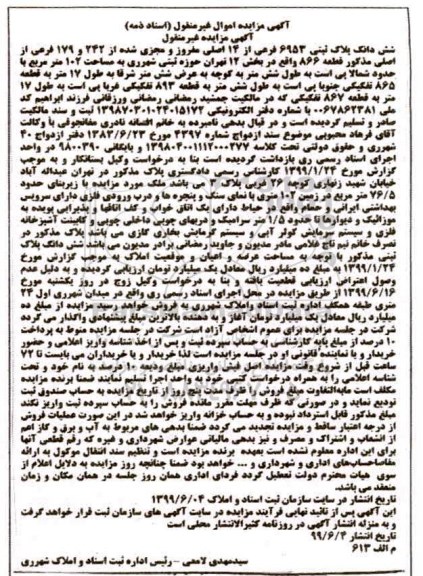 آگهی مزایده اموال غیرمنقول (اسناد ذمه)
آگهی مزایده غیرمنقول
شش دانگ پلاک ثبتی ۶۹۵۳ فرعی از ۱۴ اصلی مفروز و مجزی شده از ۲۴۲ و ۱۷۹ فرعی از
اصلی مذکور قطعه ۸۶۶ واقع در بخش ۱۲ تهران حوزه ثبتی شهرری به مساحت ۱۰۲ متر مربع با
حدود شمالا پی است به طول شش متر به کوچه به عرض شش متر شرقا به طول ۱۷ متر به قطعه
۸۶۵ تفکیکی جنوبا پی است به طول شش متر به قطعه ۸۹۳ تفکیکی غربا پی است به طول ۱۷
متر به قطعه ۸۶۷ تفکیکی که در مالکیت جمشید رمضانی رمضانی ورزقانی فرزند ابراهیم کد
ملی ۰۰۶۷۸۶۲۳۸۱ با شماره دفتر الکترونیکی ۱۳۹۸۷۰۳۰۱۰۲۴۰۱۵۱۷۲ ثبت و سند مالکیت
صادر و تسلیم گردیده است و در قبال بدهی نامبرده به خانم افتخاریه نادری مفانجوقی با وکالت
آقای فرهاد محبوبی موضوع سند ازدواج شماره ۴۳۹۷ مورخ ۱۳۸۳/۶/۲۳ دفتر ازدواج ۴۰
شهرری و حقوق دولتی تحت کلاسه ۱۳۹۸۰۴۰۰۱۱۱۲۰۰۰۲۷۷ و بایگانی ۹۸۰۰۳۹۰ در واحد
اجرای اسناد رسمی ری بازداشت گردیده است بنا به درخواست وکیل بستانکار و به موجب
گزارش مورخ ۱۳۹۹/۱/۲۴ کارشناس رسمی دادگستری پلاک مذکور در تهران عبداله آباد
خیابان شهید زنهاری کوچه ۲۶ غربی پلاک ۲ می باشد ملک مورد مزایده با زیربنای حدود
۷۶/۵ متر مربع در زمین ۱۰۲ متر با نمای سنگ و پنجره ها و درب ورودی فلزی دارای سرویس
بهداشتی ایرانی و حمام واقع در حیاط دارای یک اتاق خواب و کف اتاقها و پذیرایی پوشیده به
موزائیک و دیوارها تا حدود ۱/۵ متر سرامیک و دربهای چوبی داخلی چوبی و کابینت آشپزخانه
فلزی و سیستم سرمایش کولر آبی و سیستم گرمایش بخاری گازی می باشد پلاک مذکور در
تصرف خانم نیم تاج غلامی مادر مدیون و جاوید رمضانی برادر مدیون می باشد شش دانگ پلاک
ثبتی مذکور با توجه به مساحت عرصه و اعیان و موقعیت املاک به موجب گزارش مورخ
۱۳۹۹/۱/۲۴ به مبلغ ده میلیارد ریال معادل یک میلیارد تومان ارزیابی گردیده و به دلیل عدم
وصول اعتراض ارزیابی قطعیت یافته و بنا به درخواست وکیل زوج در روز یکشنبه مورخ
۱۳۹۹/۶/۱۶ از طریق مزایده در محل اجرای اسناد رسمی ری واقع در میدان شهرری اول ۲۴
متری طبقه همکف اداره ثبت اسناد واملاک شهرری به فروش خواهد رسید. مزایده از مبلغ ده
میلیارد ریال معادل یک میلیارد تومان آغاز و به دهنده بالاترین مبلغ پیشنهادی واگذار می گردد
شرکت در جلسه مزایده برای عموم اشخاص آزاد است شرکت در جلسه مزایده منوط به پرداخت
۱۰ درصد از مبلغ پایه کارشناسی به حساب سپرده ثبت و پس از اخذ شناسه واریز اعلامی و حضور
خریدار و یا نماینده قانونی او در جلسه مزایده است لذا خریدار و یا خریداران می بایست تا ۷۲
ساعت قبل از شروع وقت مزایده اصل فیش واریزی مبلغ ودیعه ۱۰ درصد به نام خود و تحت
شناسه اعلامی را به همراه درخواست کتبی خود به واحد اجرا تسلیم نمایند ضمنا برنده مزایده
مکلف است مابه التفاوت مبلغ فروش را ظرف مدت پنج روز از تاریخ مزایده به حساب صندوق ثبت
تودیع نماید و در صورتی که ظرف مهلت مقرر مانده فروش را به حساب سپرده ثبت واریز نکند
مبلغ مذکور قابل استرداد نبوده و به حساب خزانه واریز خواهد شد در این صورت عملیات فروش
از درجه اعتبار ساقط و مزایده تجدید می گردد ضمنا بدهی های مربوط به آب و برق و گاز اعم
از انشعاب و اشتراک و مصرف و نیز بدهی مالیاتی عوارض شهرداری و غیره که رقم قطعی آنها
برای این اداره معلوم نشده است بعهده برنده مزایده است و تنظیم سند انتقال موکول به ارائه
مفاصاحساب‌های اداری و شهرداری و ... خواهد بود ضمنا چنانچه روز مزایده به دلایل اعلام از
سوی هیات محترم دولت تعطیل گردد فردای اداری همان روز جلسه در همان مکان و زمان
منعقد می باشد.
تاریخ انتشار در سایت سازمان ثبت اسناد و املاک ۱۳۹۹/۶/۰۴
این آگهی پس از تائید نهایی فرآیند مزایده در سایت آگهی های سازمان ثبت قرار خواهد گرفت
و به منزله انتشار آگهی در روزنامه کثیرالانتشار محلی است
تاریخ انتشار ۹۹/۶/۴
م الف ۶۱۳
سیدمهدی لامعی - رئیس اداره ثبت اسناد و املاک شهرری